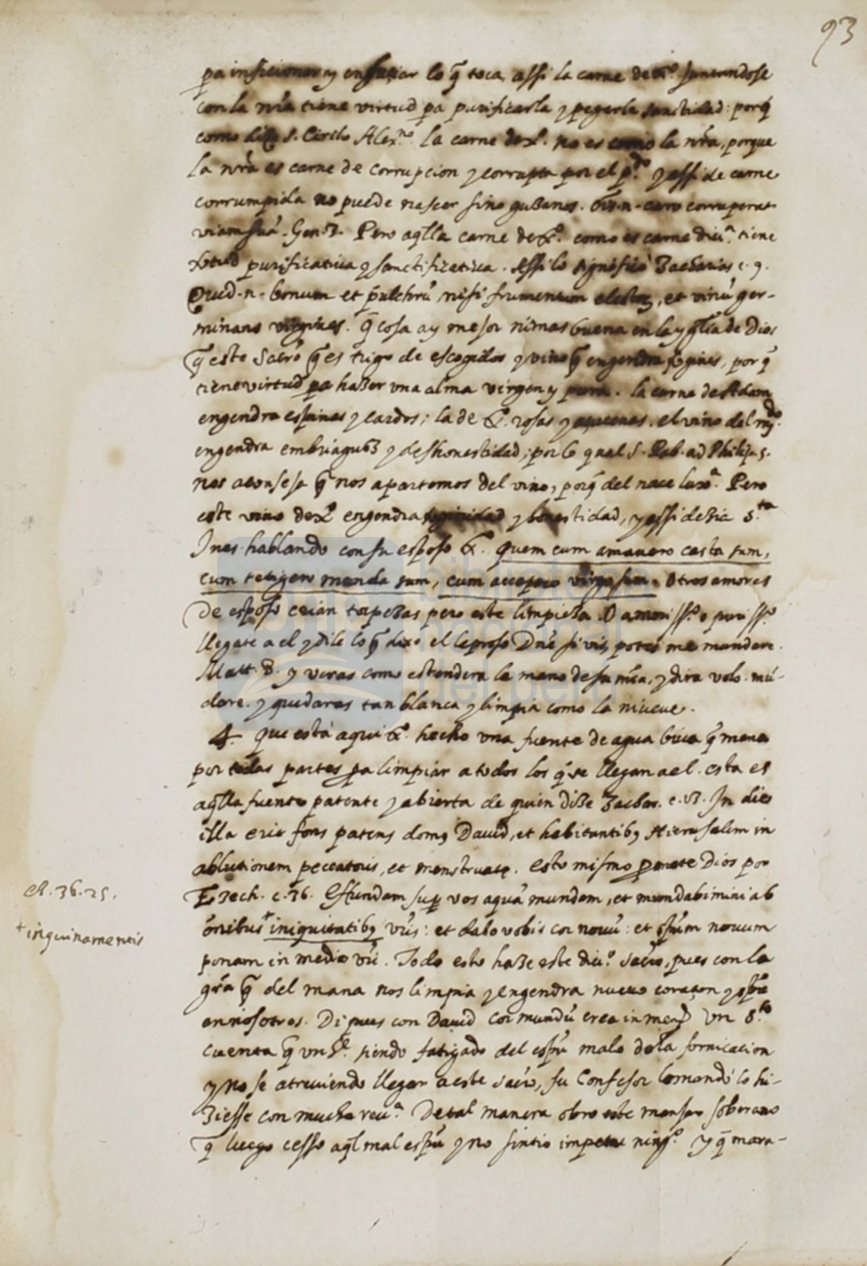 93
pa inficionar y ensuciar lo q̃ toca, assi la carne de Xº. Juntandose
con la nr̃a tiene virtud pa purificarla y pegarle sanctidad: porq̃
como dize S. Cirilo Alexⁿº. la carne de xº. no es como la nr̃a, porque
la nr̃a es carne de corrupcion y corrupta por el pº. y assi de carne
corrumpida no puede nascer sino gusanos. õis .n. caro corruperat
viam suã. Gen. Pero aq̃lla carne de Xº. como es carne diuª. tiene
virtud purificatiua y sanctificatiua. Assi lo significó Zacharias c. 9.
Quid .n. bonum et pulchrũ nisi frumentum electoꝝ, et vinũ ger-
minans virgines. q̃ cosa ay mejor ni mas buena en la yglĩa de Dios
q̃ este Sacrõ q̃ es trigo de escogidos y vino q̃ engendra virgines, por q̃
tiene virtud pa hazer vna alma virgen y pura. la carne de Adam
engendra espinas y cardos; la de Xº. rosas y açucenas. el vino del mũdº.
engendra embriaguez y deshonestidad; por lo qual S. Pab. ad Philip. 5.
nos aconseja q̃ nos apartemos del vino, porq̃ del nace luxª. Pero
este vino de Xº engendra virginidad y honestidad, y assi dezia S.ᵗᵃ
Ines hablando con su esposo Xº. quem cum amauero casta sum,
cum tetigero munda sum, cum accepero virgo sum. Otros amores
de esposo crian torpezas pero este limpieza. O amoriss.º o puriss.º
llegate a el y dile lo q̃ dixo el leproso Dñe si vis, potes me mundare.
Matt. 8. y veras como estendera la mano de su mĩa, y dira volo. mũ-
dare. y quedaras tan blanca y limpia como la nieue.
4. Que está aqui Xº. hecho vna fuente de agua biua q̃ mana
por todas partes pa limpiar a todos los q̃ se llegan a el. esta es
aq̃lla fuente patente y abierta de quien dize Zachar. c. 13. In die
illa erit fons patens domꝰ Dauid, et habitantibꝰ Hierusalem in
ablutionem peccatoris, et menstruatę. esto mismo promete Dios por
Ezech. c. 36. Effundam sup̃ vos aquã mundam, et mundabimini ab
õnibus + iniquitatibꝰ vr̃is: et dabo vobis cor nouũ: et spũm nouum
ponam in medio vr̃i. Todo esto haze este diuº. sacrõ, pues con la
gr̃a q̃ del mana nos limpia y engendra nueuo coraçon y spũ
en nosotros. Di pues con Dauid cor mundũ crea in me Dˢ. Vn S.ᵗᵒ
cuenta q̃ vn Rº. siendo fatigado del espũ malo de la fornicacion
y no se atreuiendo llegar a este sacrõ, su Confesor le mandó lo hi-
ziesse con mucha reuª. De tal manera obro este manjar soberano
q̃ luego cesso aq̃l mal espũ y no sintio impetu ningº. Y q̃ mara-
cR. 36. 25.
+ inquinamentis